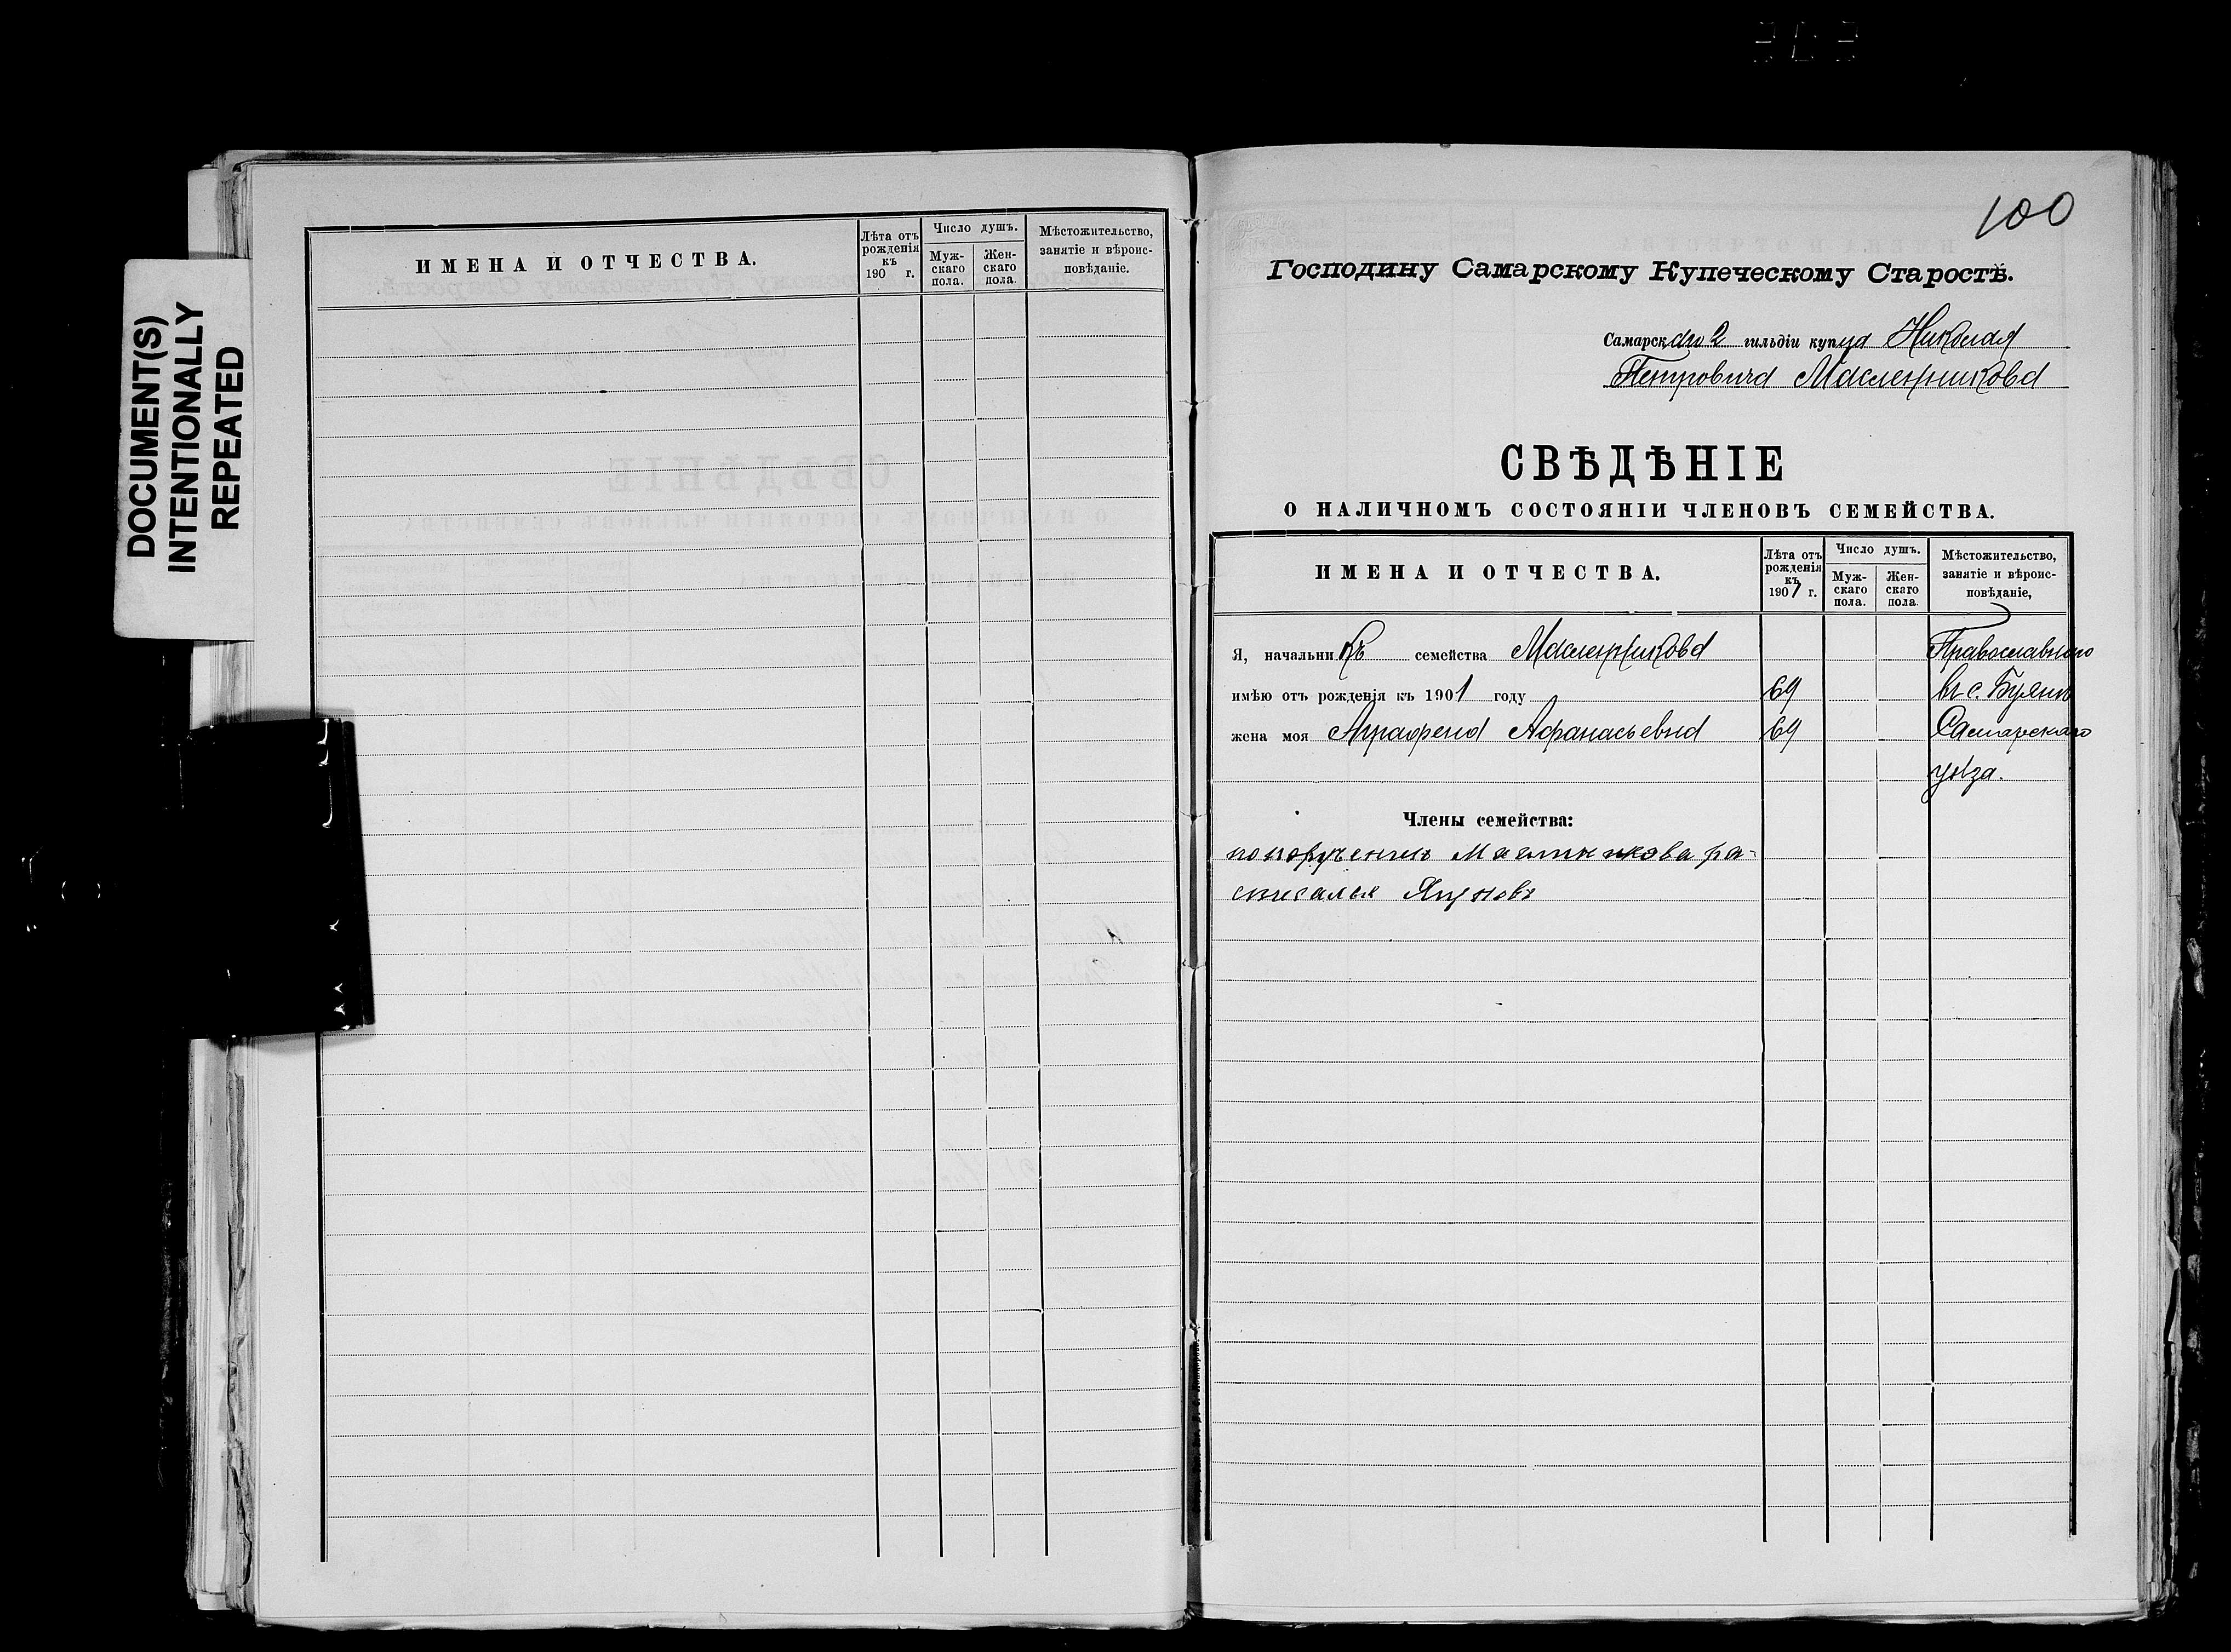 DOCUMENT(S)
INTENTIONALLY
REPEATED
ИМЕНА И ОТЧЕСТВА.
Лѣта отъ
рожденія
къ
190 г.
Число душъ.
Муж-
скаго
пола.
Жен-
скаго
пола.
Мѣстожительство,
занятіе и вѣроис-
повѣданіе.
100
Господину Самарскому Купеческому Старостѣ.
Самарскаго 2 гильдіи купца Николая
Петровича Масленникова
СВѢДѢНІЕ
О НАЛИЧНОМЪ СОСТОЯНІИ ЧЛЕНОВЪ СЕМЕЙСТВА.
ИМЕНА И ОТЧЕСТВА.
Лѣта отъ
рожденія
къ
1901 г.
Число душъ.
Муж-
скаго
пола.
Жен-
скаго
пола.
Мѣстожительство,
занятіе и вѣроис-
повѣданіе,
Я, начальникъ семейства Масленникова Православнаго
имѣю отъ рожденія къ 1901 году 69 въ с. Буянъ
жена моя Аграфена Афанасьевна 69 Самарскаго
уѣзда.
Члены семейства:
по порученію Масленикова ра-
списался